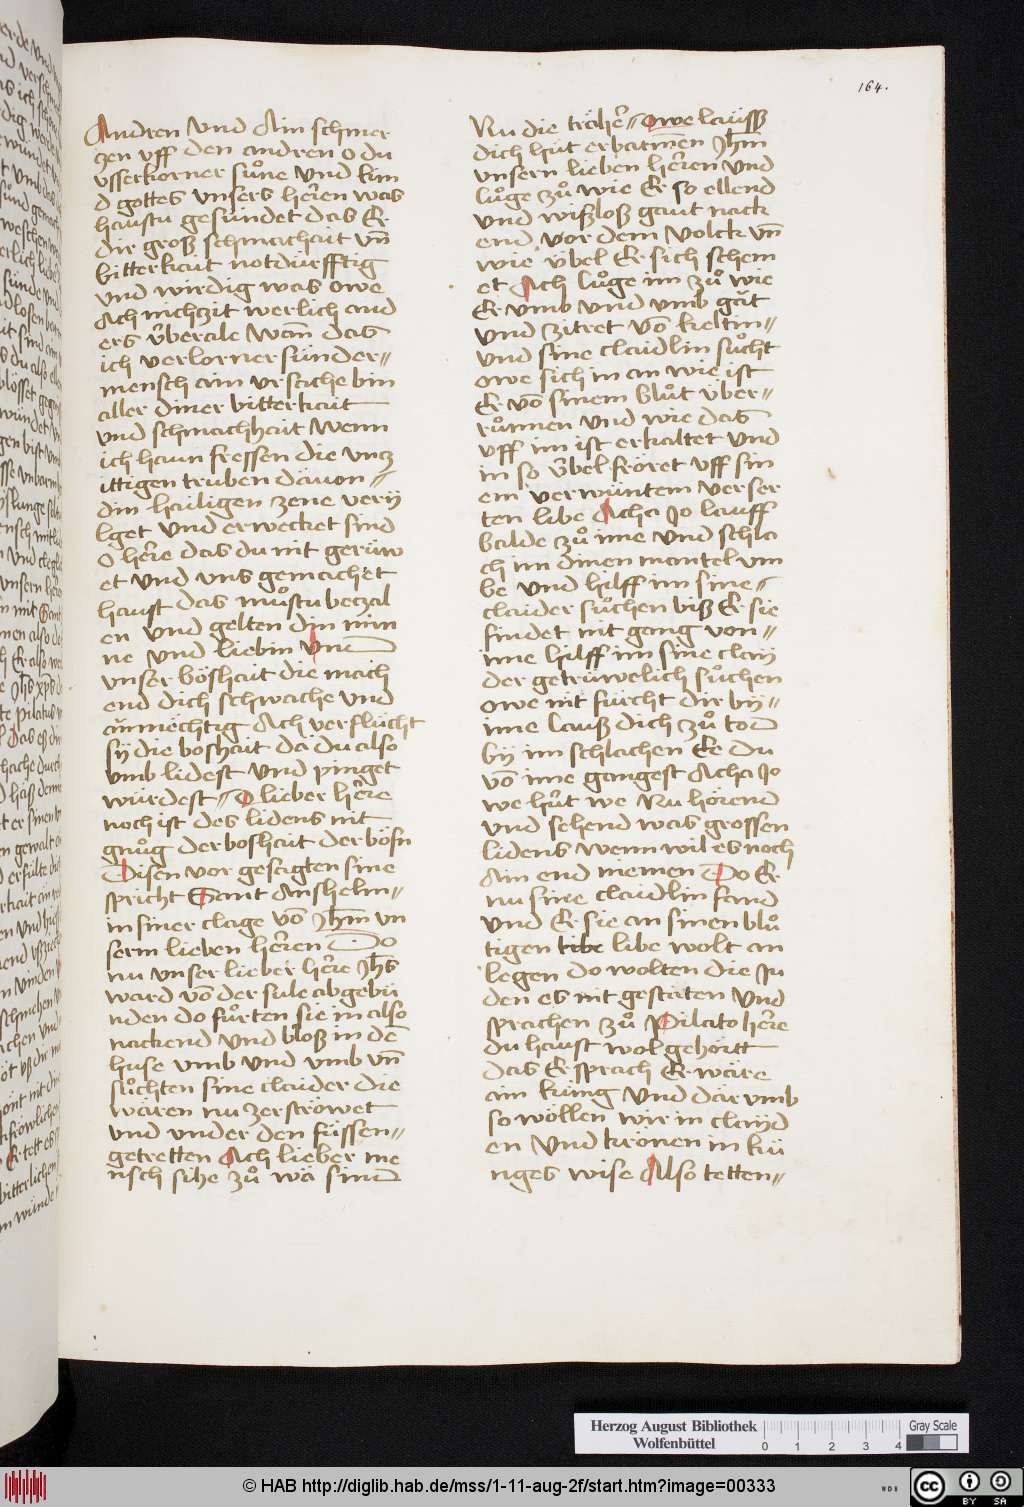 164.
Andren vnd Ain schmer
zen vff den andren o du
vsserkorner sůne vnd kin
d gottes vnsers herren was
haustu gesúndet das Er
dir groß schmachait vn̄
bitterkait notdúrfftig
vnd wirdig was owe
Ach nichzit werlich and
ers v̈berale Wan̄ das
ich verlorner súnder"
mensch ain vrsache bin
aller diner bitterkait
vnd schmachhait Wenn
ich haun fressen die vnz
ittigen truben dauon"
din hailigen zene verij
lget vnd erwecket sind
O here das du nit gerúw
et vnd vns gemachet
haust das můstu bezal
en vnd gelten din min
ne vnd liebin vnd
vnser böshait die mach
end dich schwache vnd
aúmechtig Ach verflúcht
sÿ die boshait da du also
vmb lidest vnd pinget
wúrdest" O lieber here
noch ist des lidens nit
gnůg der boshait der bösn
Disen vor gesagten sine
spricht Sant Anshelm"
in siner clage vō Jhm̄ vn
serm lieben herren Do
nu vnser lieber here Jhs̄
ward vō der sule abgebú
nden do fůrten sie in also
nackend vnd bloß in dē
huse vmb vnd vmb vn̄
sůchten sine claider die
wären nu zerströwet
vnd vnder den fússen"
getretten Ach lieber me
nsch sihe zů wä sind
Nu die träher" owe lauß
dich hút erbarmen Jhm̄
vnsern lieben herren vnd
lůge zů wie Er so ellend
vnd wißloß gaut nack
end vor dem volck vn̄
wie v̈bel Er sich schem
et Ach lůge im zů wie
Er vmb vnd vmb gät
vnd zitret vō keltin"
vnd sine claidlin sůcht
owe sich in an wie ist
Er vō sinem blůt v̈ber"
růnnen vnd wie das
vff im ist erkaltet vnd
in so v̈bel fröret vff sin
em verwúntem verser
ten libe Acha Jo lauff
balde zů ime vnd schla
ch im dinen mantel vm
be vnd hilff im sine"
claider sůchen biß Er sie
findet nit gang von"
ime hilff im sine claÿ
der getrúwelich sůchen
owe nit fúrcht dir bÿ"
ime lauß dich zů tod
bÿ im schlachen Ee du
vō ime gangest Acha Jo
we hút we Nu hörend
vnd sehend was grossen
lidens wenn wil es noch
Ain end niemen Do Er
nu sine claidlin fand
vnd Er sie an sinen blů
tigen libe wolt an
legen do wolten die Ju
den es nit gestaten vnd
sprachen zů Pilato here
du haust wol gehörtt
das Er sprach Er wäre
ain kúnig vnd där vmb
so wöllen wir in claÿd
en vnd krönen in kú
nges wise Also tetten"
Herzog August Bibliothek
Wolfenbüttel
0 1 2 3 4
Gray Scale
© HAB http://diglib.hab.de/mss/1-11-aug-2f/start.htm?image=00333
cc BY SA